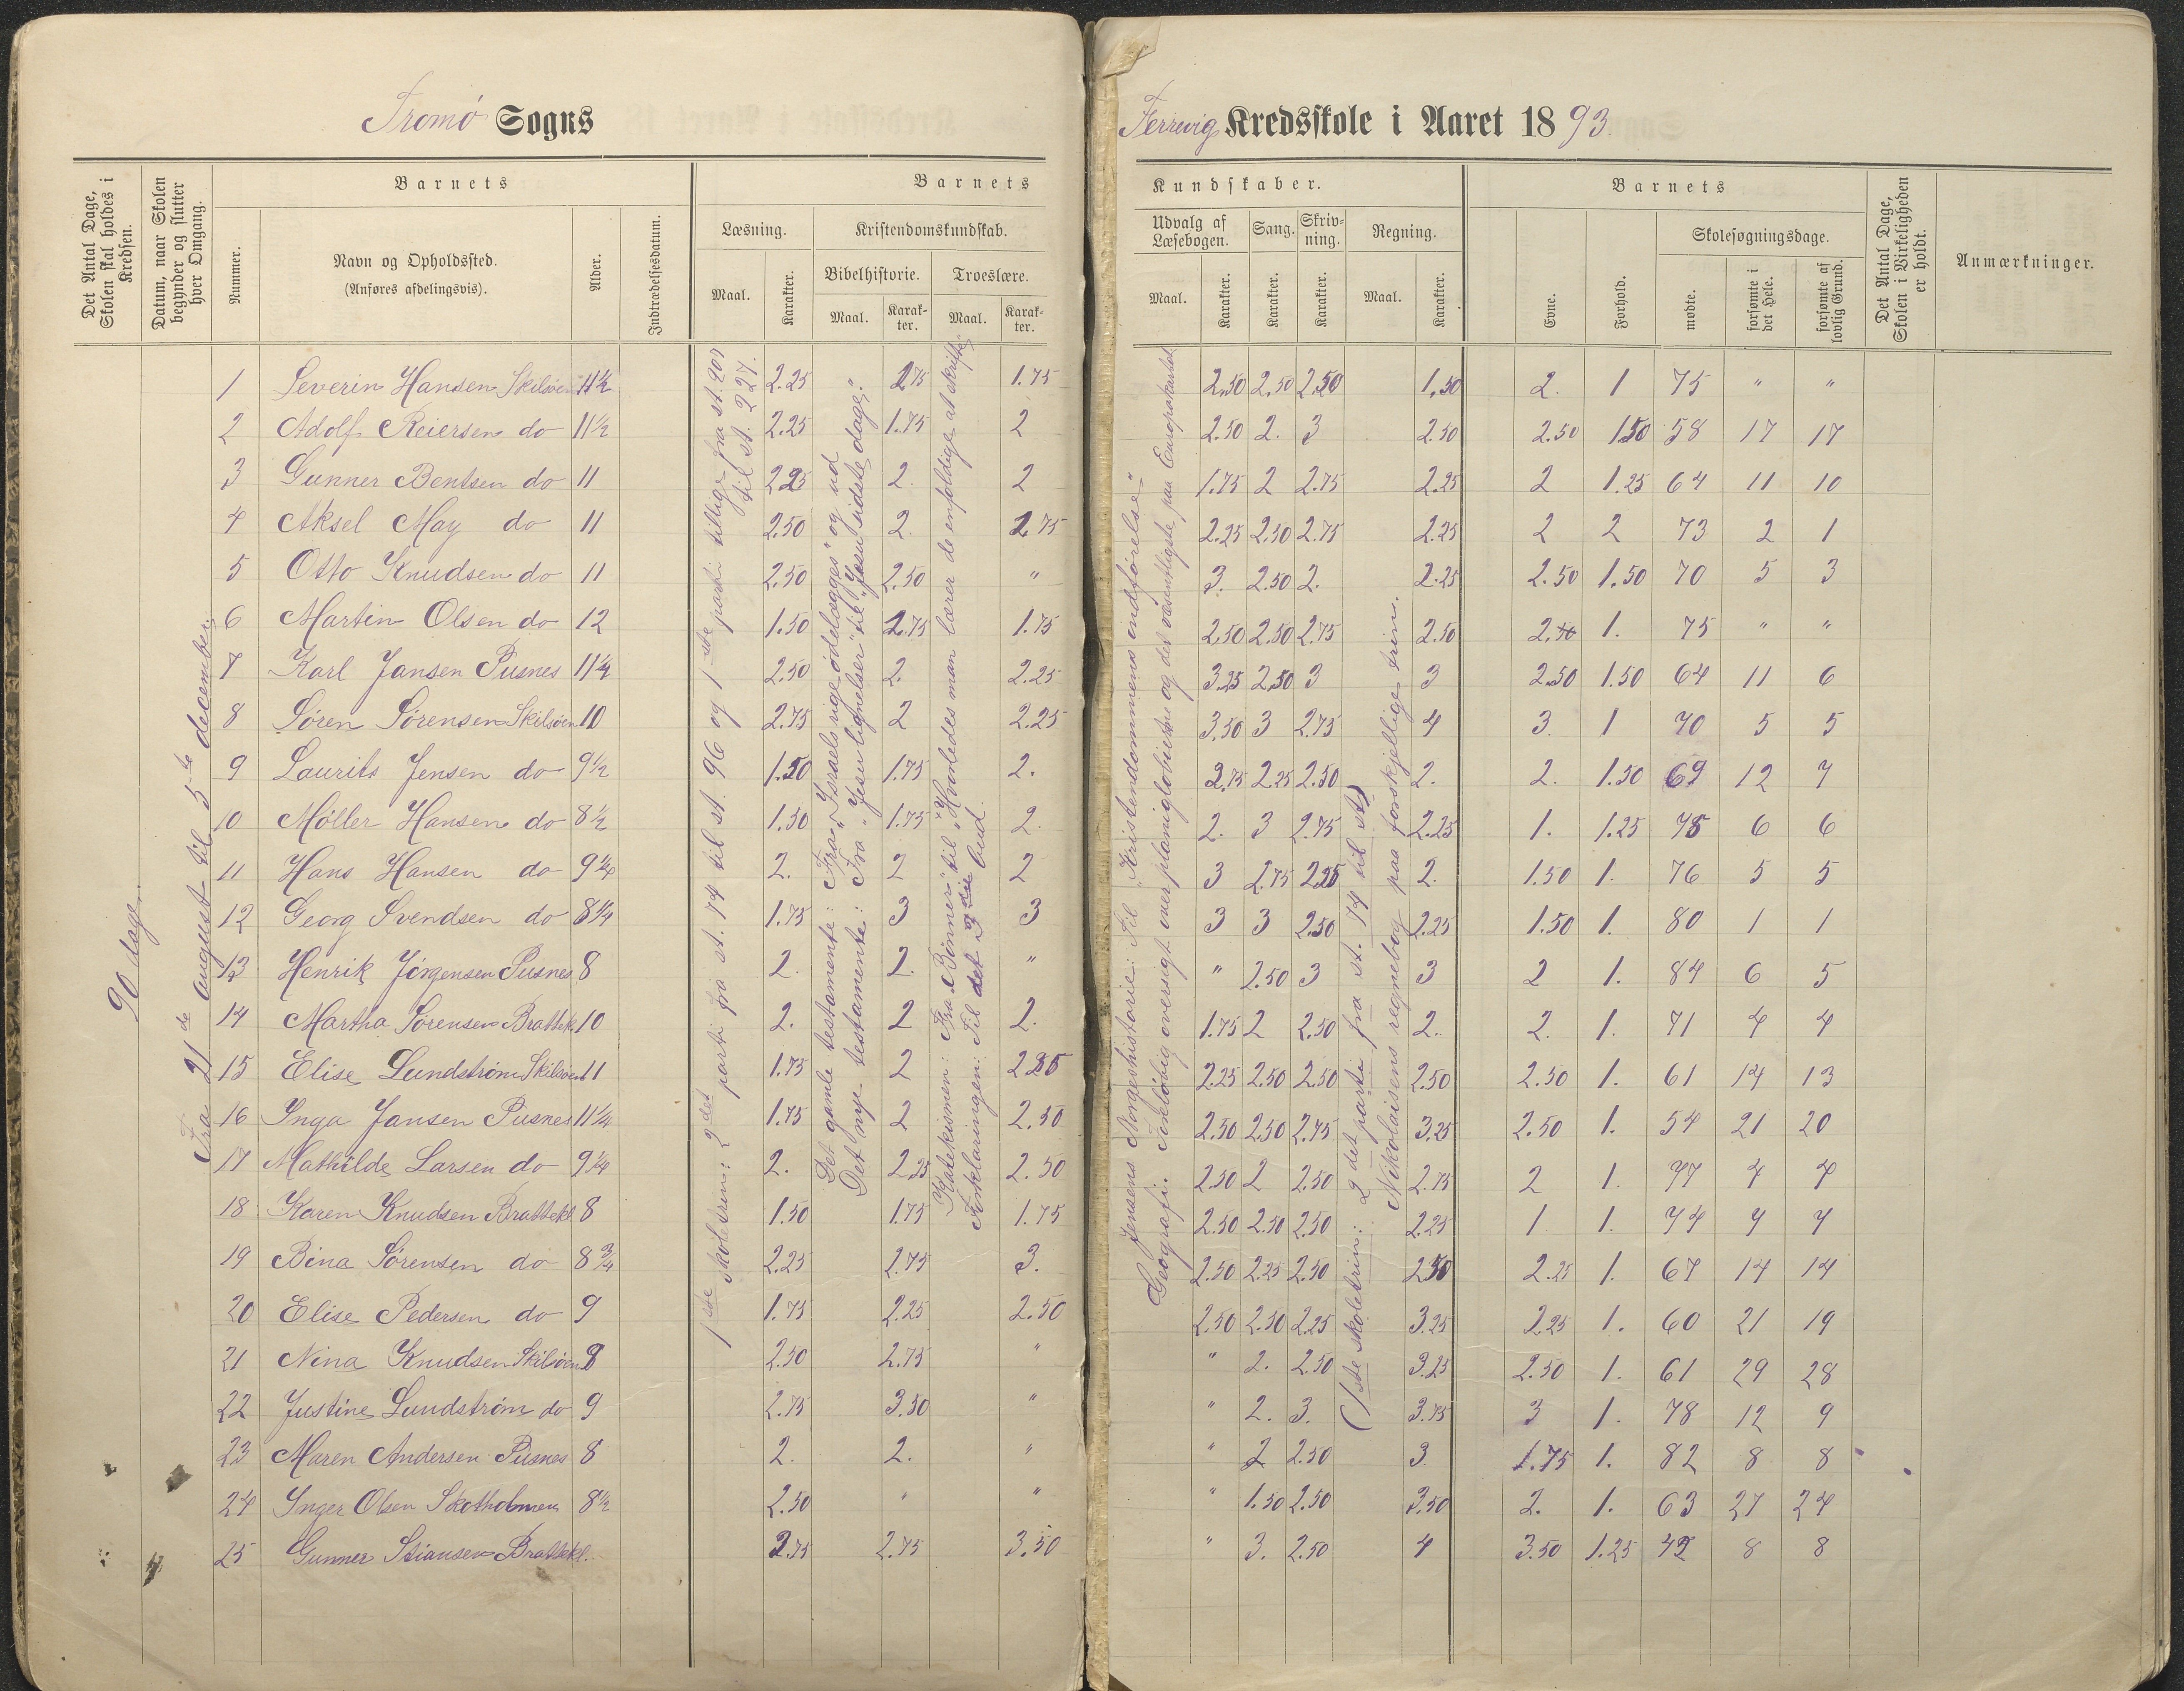 Tromø Sogns
Færrevig Kredsskole i Aaret 1893.
Det Antal Dage, Skolen skal holdes i Kredsen.
Datum, naar Skolen begynder og slutter hver Omgang.
Barnets
Nummer.
Navn og Opholdssted.
(Anføres afdelingsvis).
Alder.
Indtrædelsesdatum.
Barnets
Læsning.
Maal.
Karakter.
Kristendomskundskab.
Bibelhistorie.
Maal.
Karakter.
Troeslære.
Maal.
Karakter.
Kundskaber.
Udvalg af Læsebogen.
Maal.
Karakter.
Sang.
Karakter.
Skrivning.
Karakter.
Regning.
Maal.
Karakter.
Barnets
Evne.
Forhold.
Skolesøgningsdage.
mødte.
forsømte i det Hele.
forsømte af lovlig Grund.
Det Antal Dage, Skolen i Virkeligheden er holdt.
Anmærkninger.
90 dage.
Fra 21de august til 5te december.
1ste skoletrin: 2det parti fra st. 74 til st. 96 og 1ste parti tillige fra st. 207 til st. 227.
Det gamle testamente: Fra "Israels rige ödelægges" og ud
Det nye testamente: Fra "Jesu lignelser" til "Jesu sidste dage".
Katekismen: Fra "Bönnen" til "Hvorledes man lærer de enfoldige at skrifte
Forklaringen: Til det 3die bud.
Jensens Norgeshistorie: Til "Kristendommens indförelse"
Geografi. Forelöbig oversigt over planiglobierne og det væsentligste paa Europakartet
(1ste skoletrin: 2det parti fra st. 74 til st)
Nikolaisens regnebog paa forskjellige trin.
1 Severin Hansen Skilsöen 11½ 2.25 2.75 1.75 2.50 2.50 2.50 1.50 2. 1 75 " "
2 Adolf Reiersen do 11½ 2.25 1.75 2 2.50 2. 3 2.50 2.50 1.50 58 17 17
3 Gunner Bentsen do 11 2.25 2. 2 1.75 2 2.75 2.25 2 1.25 64 11 10
4 Aksel May do 11 2.50 2. 2.75 2.25 2.50 2.75 2.25 2 2 73 2 1
5 Otto Knudsen do 11 2.50 2.50 " 3. 2.50 2. 2.25 2.50 1.50 70 5 3
6 Martin Olsen do 12 1.50 2.75 1.75 2.50 2.50 2.75 2.50 1. 75 " "
7 Karl Jansen Pusnes 11¼ 2.50 2. 2.25 3.25 2.50 3 3 2.50 1.50 64 11 6
8 Sören Sörensen Skilsöen 10 2.75 2 2.25 3.50 3 2.75 4 3. 1 70 5 5
9 Laurits Jensen do 9½ 1.50 1.75 2. 2.75 2.25 2.50 2. 2. 1.50 69 12 7
10 Möller Hansen do 8½ 1.50 1.75 2. 2. 3 2.75 2.25 1. 1.25 75 6 6
11 Hans Hansen do 9¼ 2. 2 2 3 2.75 2.25 2. 1.50 1. 76 5 5
12 Georg Svendsen do 8¼ 1.75 3 3 3 3 2.50 2.25 1.50 1. 80 1 1
13 Henrik Jörgensen Pusnes 8 2. 2. " " 2.50 3 3 2 1. 84 6 5
14 Martha Sörensen Brattek. 10 2. 2 2. 1.75 2 2.50 2. 2. 1. 71 4 4
15 Elise Lundström Skilsöen 11 1.75 2 2.25 2.50 2.50 2.50 2.50 1. 61 14 13
16 Inga Jansen Pusnes 11¼ 1.75 2 2.50 2.50 2.50 2.75 3.25 2.50 1. 54 21 20
17 Mathilde Larsen do 9¼ 2. 2.25 2.50 2.50 2 2.50 2.75 2 1. 77 4 4
18 Karen Knudsen Brattekl 8 1.50 1.75 1.75 2.50 2.50 2.50 2.25 1 1. 74 7 7
19 Bina Sörensen do 8¾ 2.25 2.75 3. 2.50 2.25 2.50 2.50 2.25 1. 67 14 14
20 Elise Pedersen do 9 1.75 2.25 2.50 2.50 2.50 2.25 3.25 2.25 1. 60 21 19
21 Nina Knudsen Skilsöen 8 2.50 2.75 " " 2. 2.50 3.25 2.50 1. 61 29 28
22 Justine Lundström do 9 2.75 3.50 " " 2. 3. 3.75 3 1. 78 12 9
23 Maren Andersen Pusnes 8 2. 2. " " 2 2.50 3. 1.75 1. 82 8 8
24 Inger Olsen Skotholmen 8½ 2.50 " " " 1.50 2.50 3.50 2. 1. 63 27 24
25 Gunner Stiansen Brattekl. 2.75 2.75 3.50 " 3. 2.50 4 3.50 1.25 42 8 8